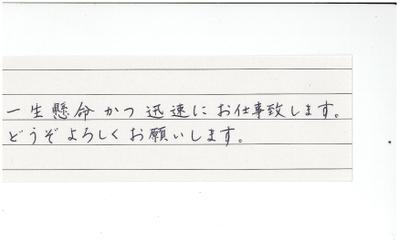 一生懸命かつ迅速にお仕事致します。
どうぞよろしくお願いします。